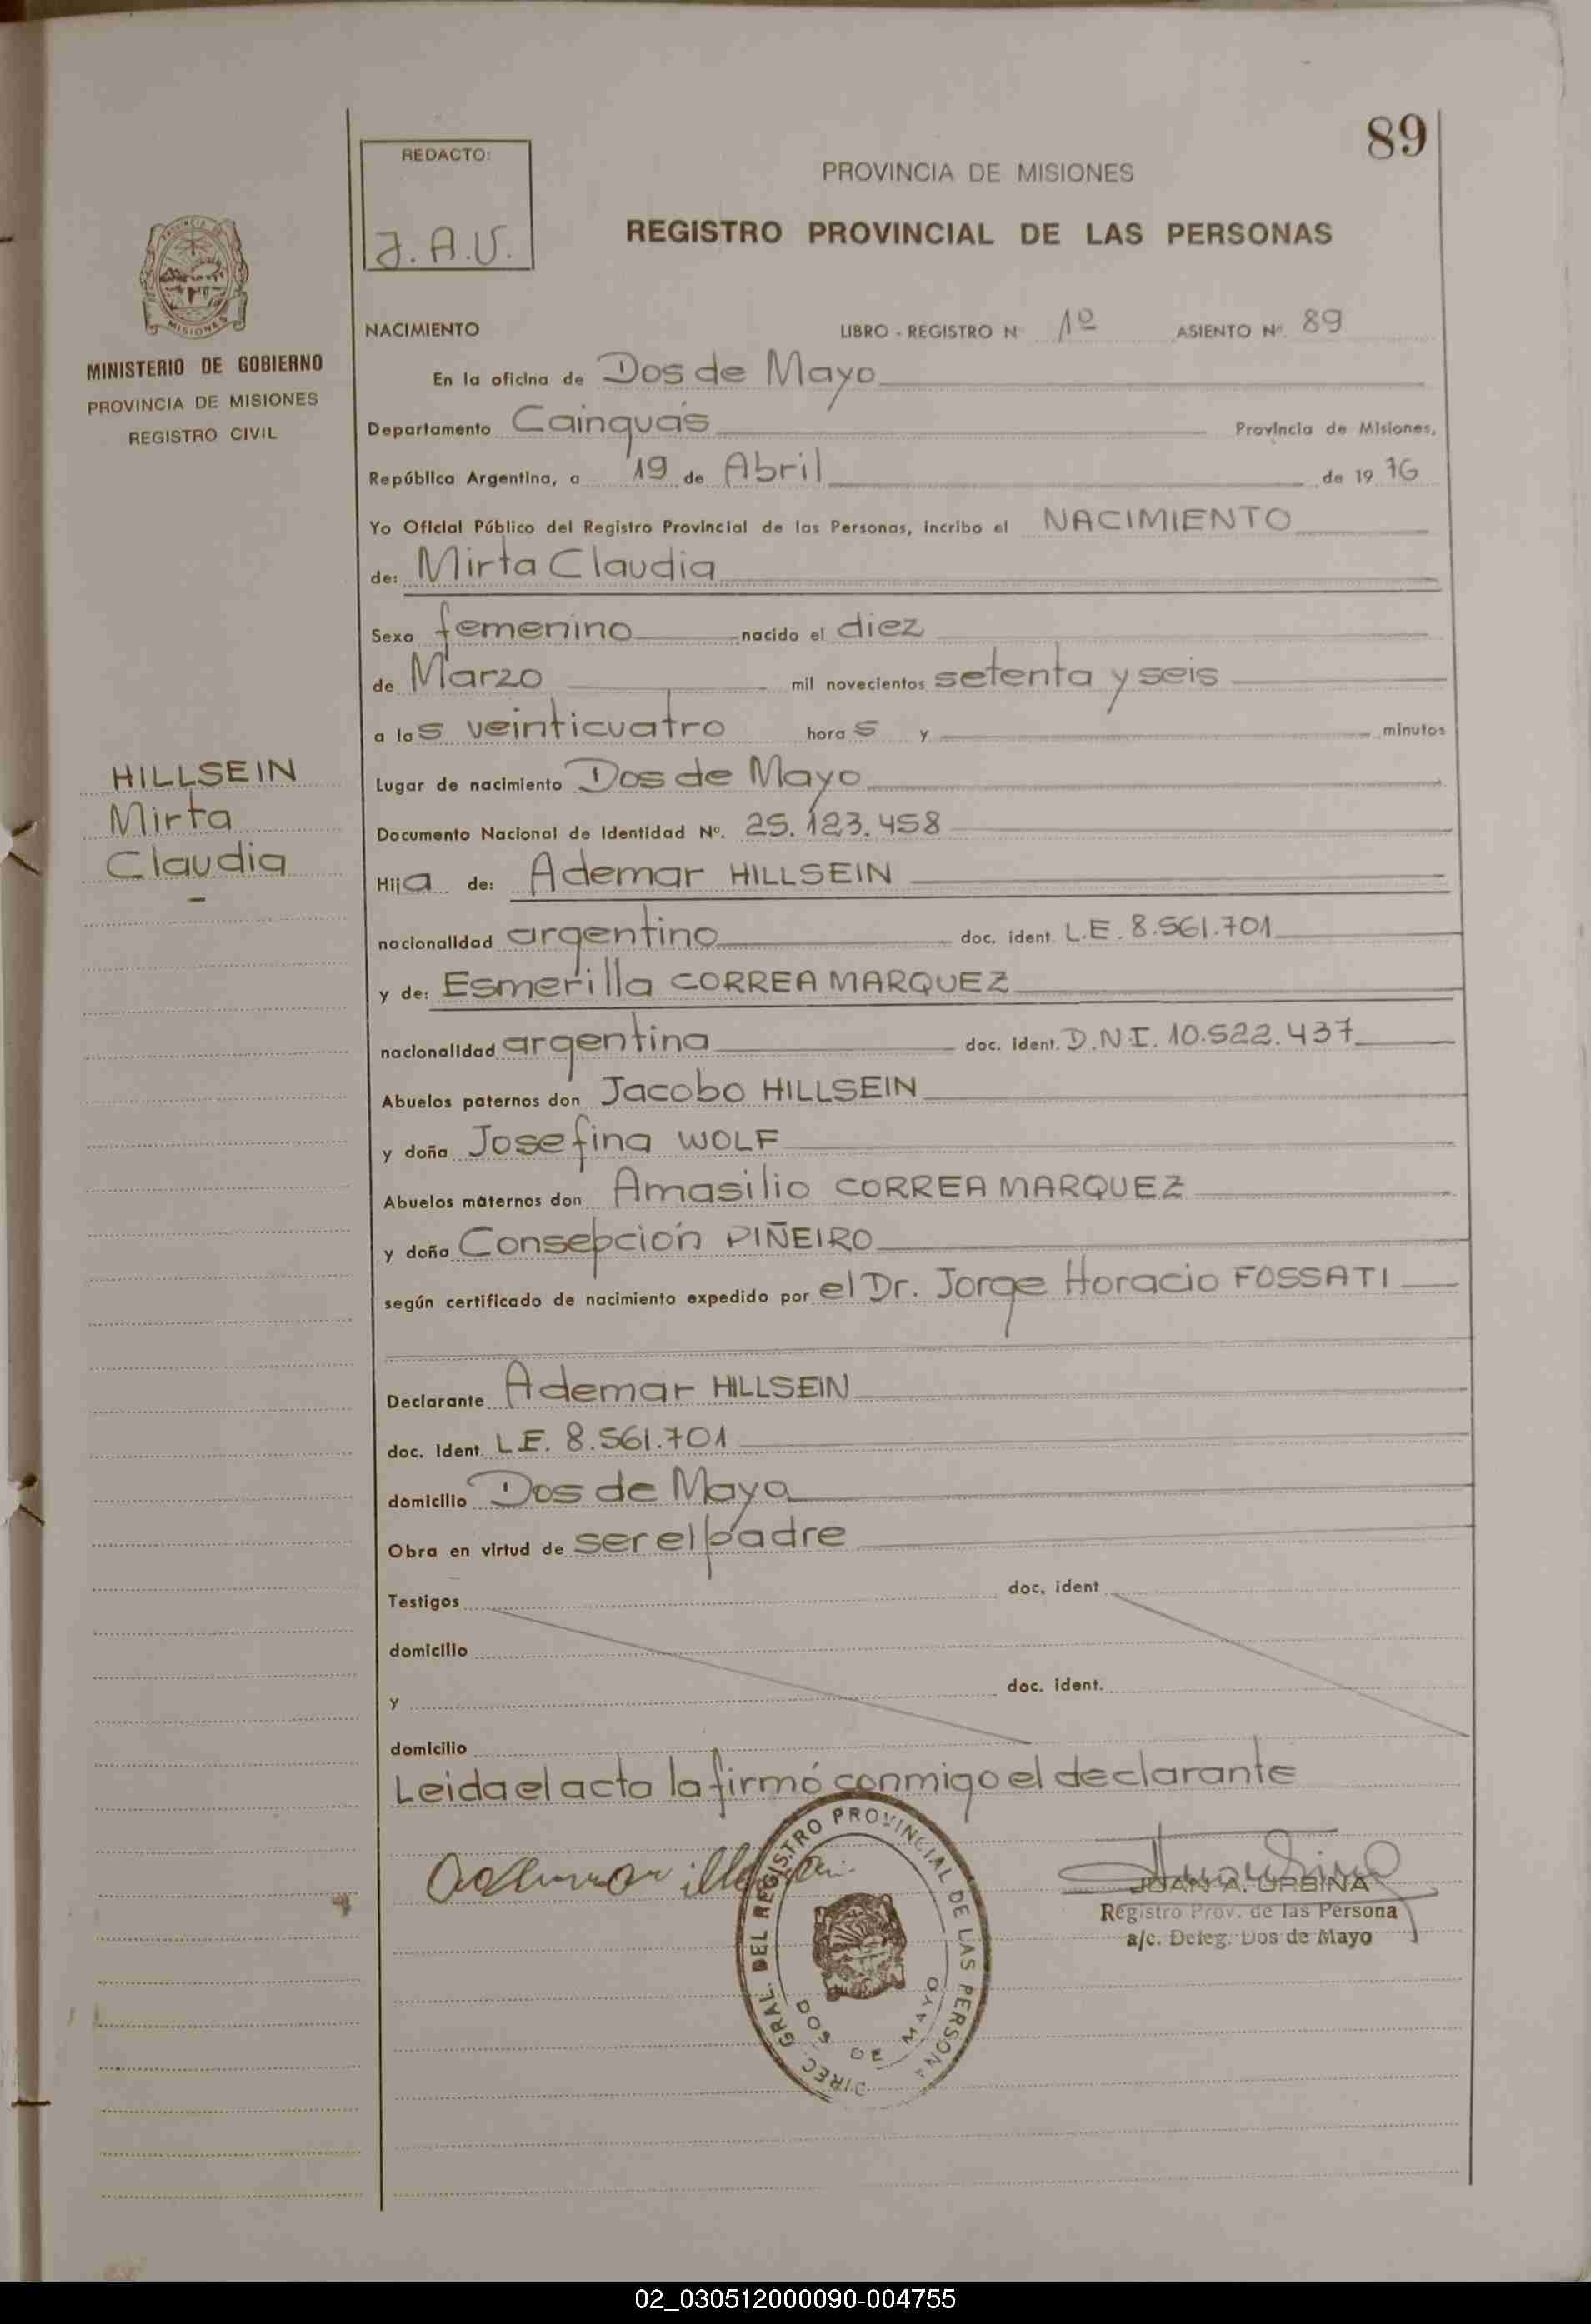 89
REDACTO:
J.A.U.
PROVINCIA DE MISIONES
REGISTRO PROVINCIAL DE LAS PERSONAS
MISIONES
MINISTERIO DE GOBIERNO
PROVINCIA DE MISIONES
REGISTRO CIVIL
NACIMIENTO LIBRO - REGISTRO N 1º ASIENTO Nº. 89
En la oficina de Dos de Mayo
Departamento Cainguás Provincia de Misiones,
República Argentina, a 19 de Abril de 19 76
Yo Oficial Público del Registro Provincial de las Personas, incribo el NACIMIENTO
de: Mirta Claudia
Sexo femenino nacido el diez
de Marzo mil novecientos setenta y seis
a las veinticuatro horas y minutos
HILLSEIN
Mirta
Claudia
Lugar de nacimiento Dos de Mayo
Documento Nacional de Identidad Nº. 25.123.458
Hija de: Ademar HILLSEIN
nacionalidad argentino doc. ident. L.E. 8.561.701
y de: Esmerilla CORREA MARQUEZ
nacionalidad argentina doc. ident. D.N.I. 10.522.437
Abuelos paternos don Jacobo HILLSEIN
y doña Josefina WOLF
Abuelos maternos don Amasilio CORREA MARQUEZ
y doña Consepción PIÑEIRO
según certificado de nacimiento expedido por el Dr. Jorge Horacio FOSSATI
Declarante Ademar HILLSEIN
doc. Ident. L.E. 8.561.701
domicilio Dos de Mayo
Obra en virtud de ser el padre
Testigos doc. ident
domicilio
y doc. ident.
domicilio
Leida el acta la firmó conmigo el declarante
DIREC. GRAL. DEL REGISTRO PROVINCIAL DE LAS PERSONAS
DOS DE MAYO
JUAN A. URBINA
Registro Prov. de las Persona
a/c. Deleg. Dos de Mayo
02_030512000090-004755